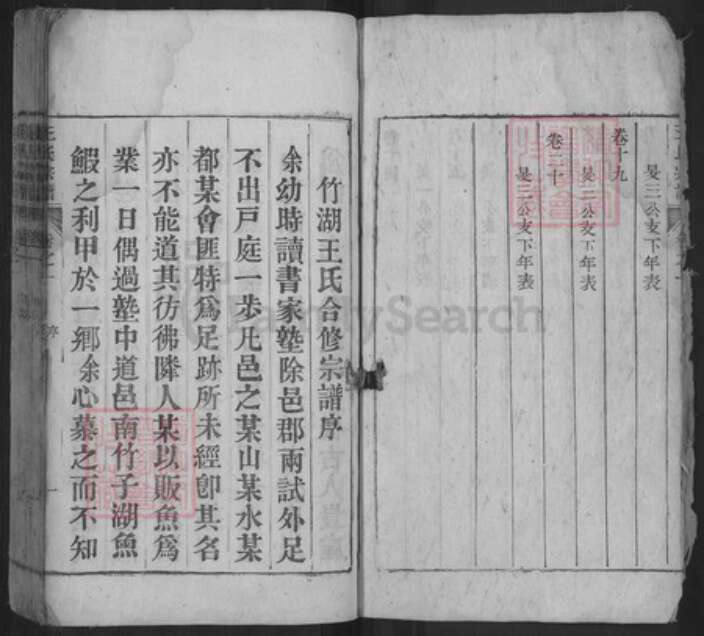 旻三公支下年表
卷十九
旻三公支下年表
卷二十
旻三公支下年表
竹湖王氏合修宗譜序
余幼時讀書家塾除邑郡兩試外足
不出戸庭一步凡邑之某山某水某
都某會匪特爲足跡所未經卽其名
亦不能道其彷彿隣人某以販魚爲
業一日偶過塾中道邑南竹子湖魚
鰕之利甲於一鄉余心慕之而不知
FamilySearch